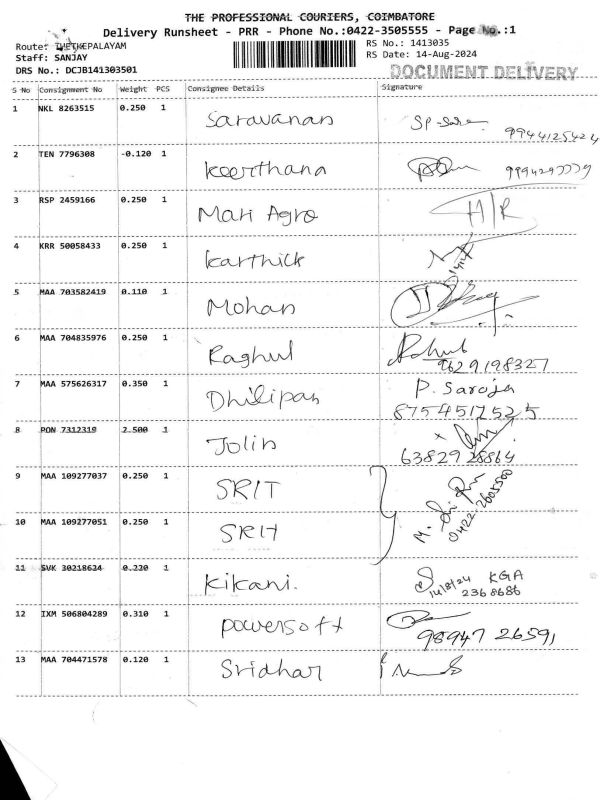 THE PROFESSIONAL COURIERS, COIMBATORE
Delivery Runsheet - PRR - Phone No.:0422-3505555 - Page No.:1
Route: THETKEPALAYAM
RS No.: 1413035
Staff: SANJAY
RS Date: 14-Aug-2024
DRS No.: DCJB141303501
DOCUMENT DELIVERY
S No Consignment No Weight PCS Consignee Details Signature
1 NKL 8263515 0.250 1 Saravanan
2 TEN 7796308 -0.120 1 Keerthana
3 RSP 2459166 0.250 1 Mari Agro H/R
4 KRR 50058433 0.250 1 Karthick
5 MAA 703582419 0.110 1 Mohan
6 MAA 704835976 0.250 1 Raghul
9629198327
7 MAA 575626317 0.350 1 Dhilipan P. Saroja
8754517525
8 PON 7312319 2.500 1 Jolin
63829 28864
9 MAA 109277037 0.250 1 SRIT
0422-2605500
10 MAA 109277051 0.250 1 SRIT
11 SVK 30218624 0.220 1 Kikani. 14/8/24 KGA
2368686
12 IXM 506804289 0.310 1 Powersoft
989472 26591
13 MAA 704471578 0.120 1 Sridhar